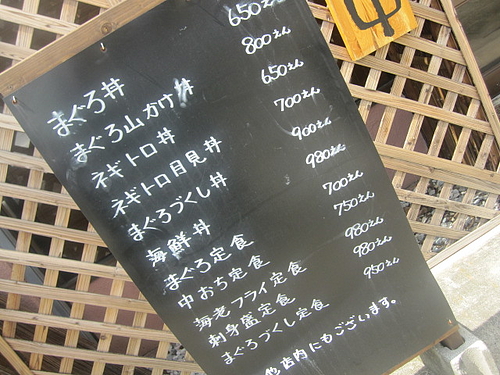 まぐろ丼 650えん
まぐろ山かけ丼 800えん
ネギトロ丼 650えん
ネギトロ月見丼 700えん
まぐろづくし丼 900えん
海鮮丼 980えん
まぐろ定食 700えん
中おち定食 750えん
海老フライ定食 980えん
刺身盛定食 980えん
まぐろづくし定食 950えん
他店内にもございます。